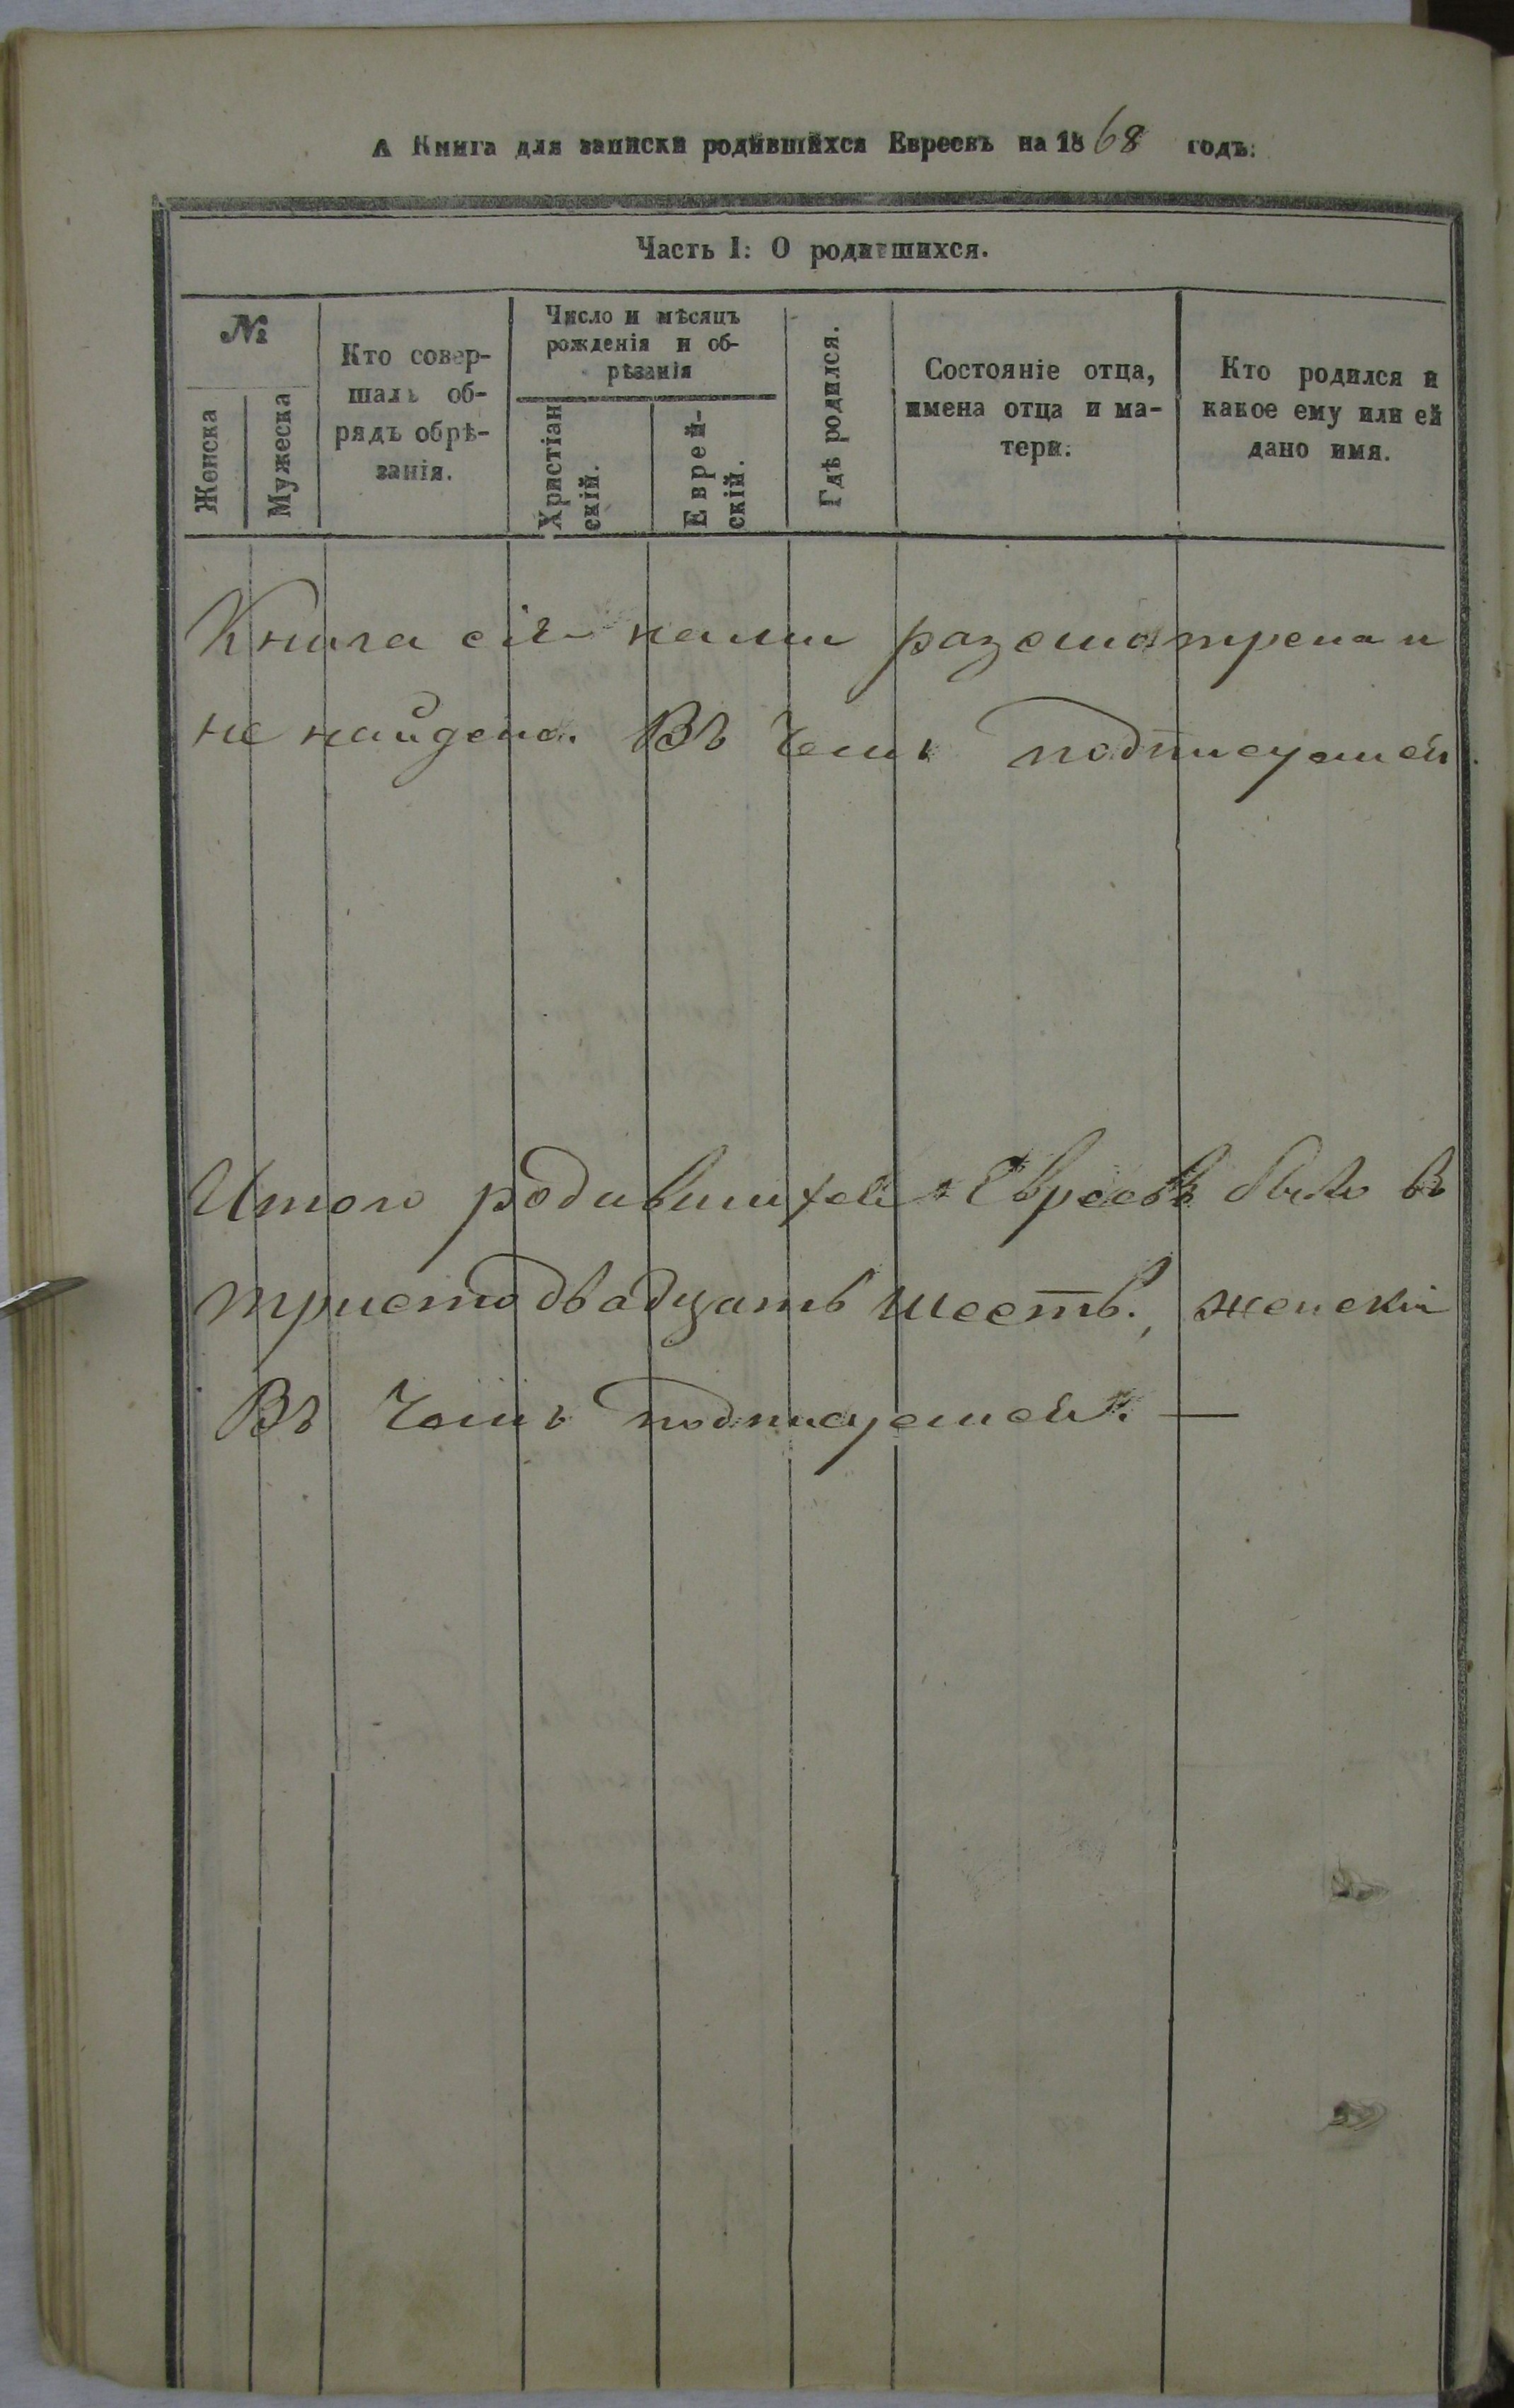 А Книга для записки родившихся Евреевъ на 1868 годъ:
Часть I: О родившихся.
№
Женска
Мужеска
Кто совер-
шалъ об-
рядъ обрѣ-
занія.
Число и мѣсяцъ
рожденія и об-
рѣзанія
Христіан
скій.
Еврей-
скій.
Гдѣ родился.
Состояніе отца,
имена отца и ма-
тери.
Кто родился и
какое ему или ей
дано имя.
Книга сія нами разсмотрена и
не найдено. Въ чемъ подписуемся.
Итого родившихся Евреевъ было въ
тристо двадцать шесть., женскій
Въ чемъ подписуемся. —